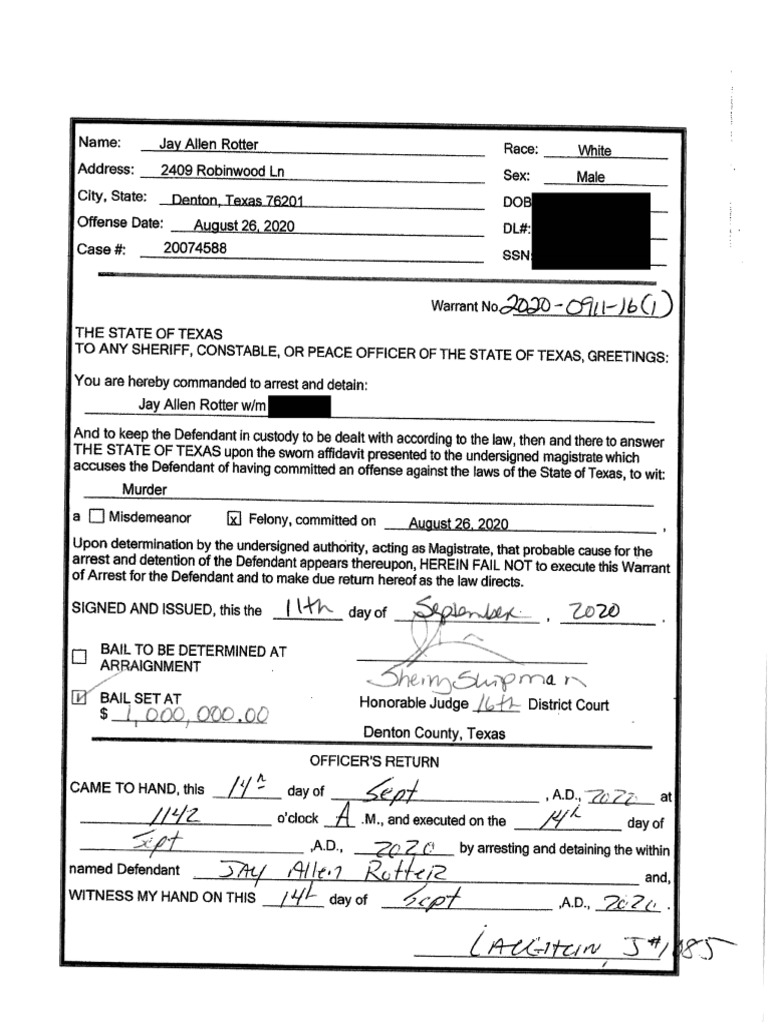 Name: Jay Allen Rotter Race: White
Address: 2409 Robinwood Ln Sex: Male
City, State: Denton, Texas 76201 DOB
Offense Date: August 26, 2020 DL#:
Case #: 20074588 SSN:
Warrant No. 2020-0911-16(1)
THE STATE OF TEXAS
TO ANY SHERIFF, CONSTABLE, OR PEACE OFFICER OF THE STATE OF TEXAS, GREETINGS:
You are hereby commanded to arrest and detain:
Jay Allen Rotter w/m
And to keep the Defendant in custody to be dealt with according to the law, then and there to answer
THE STATE OF TEXAS upon the sworn affidavit presented to the undersigned magistrate which
accuses the Defendant of having committed an offense against the laws of the State of Texas, to wit:
Murder
a Misdemeanor x Felony, committed on August 26, 2020 ,
Upon determination by the undersigned authority, acting as Magistrate, that probable cause for the
arrest and detention of the Defendant appears thereupon, HEREIN FAIL NOT to execute this Warrant
of Arrest for the Defendant and to make due return hereof as the law directs.
SIGNED AND ISSUED, this the 11th day of September , 2020 .
BAIL TO BE DETERMINED AT
ARRAIGNMENT
Sherry Shipman
BAIL SET AT
Honorable Judge 16th District Court
$ 1,000,000.00
Denton County, Texas
OFFICER'S RETURN
CAME TO HAND, this 14th day of Sept , A.D., 2020 at
1142 o'clock A .M., and executed on the 14th day of
Sept ,A.D., 2020 by arresting and detaining the within
named Defendant JAY Allen Rotter and,
WITNESS MY HAND ON THIS 14th day of Sept ,A.D., 2020 .